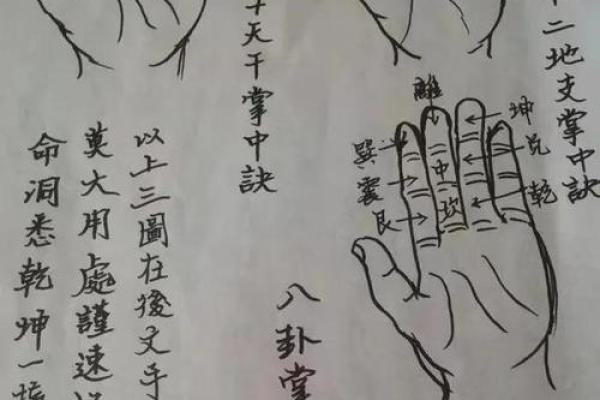 十二地支掌中訣
十天干掌中訣
離
坤
兌
乾
巽
震
艮
中
坎
八卦掌
以上三圖在後文手
莫大用處謹速
命洞悉乾坤一